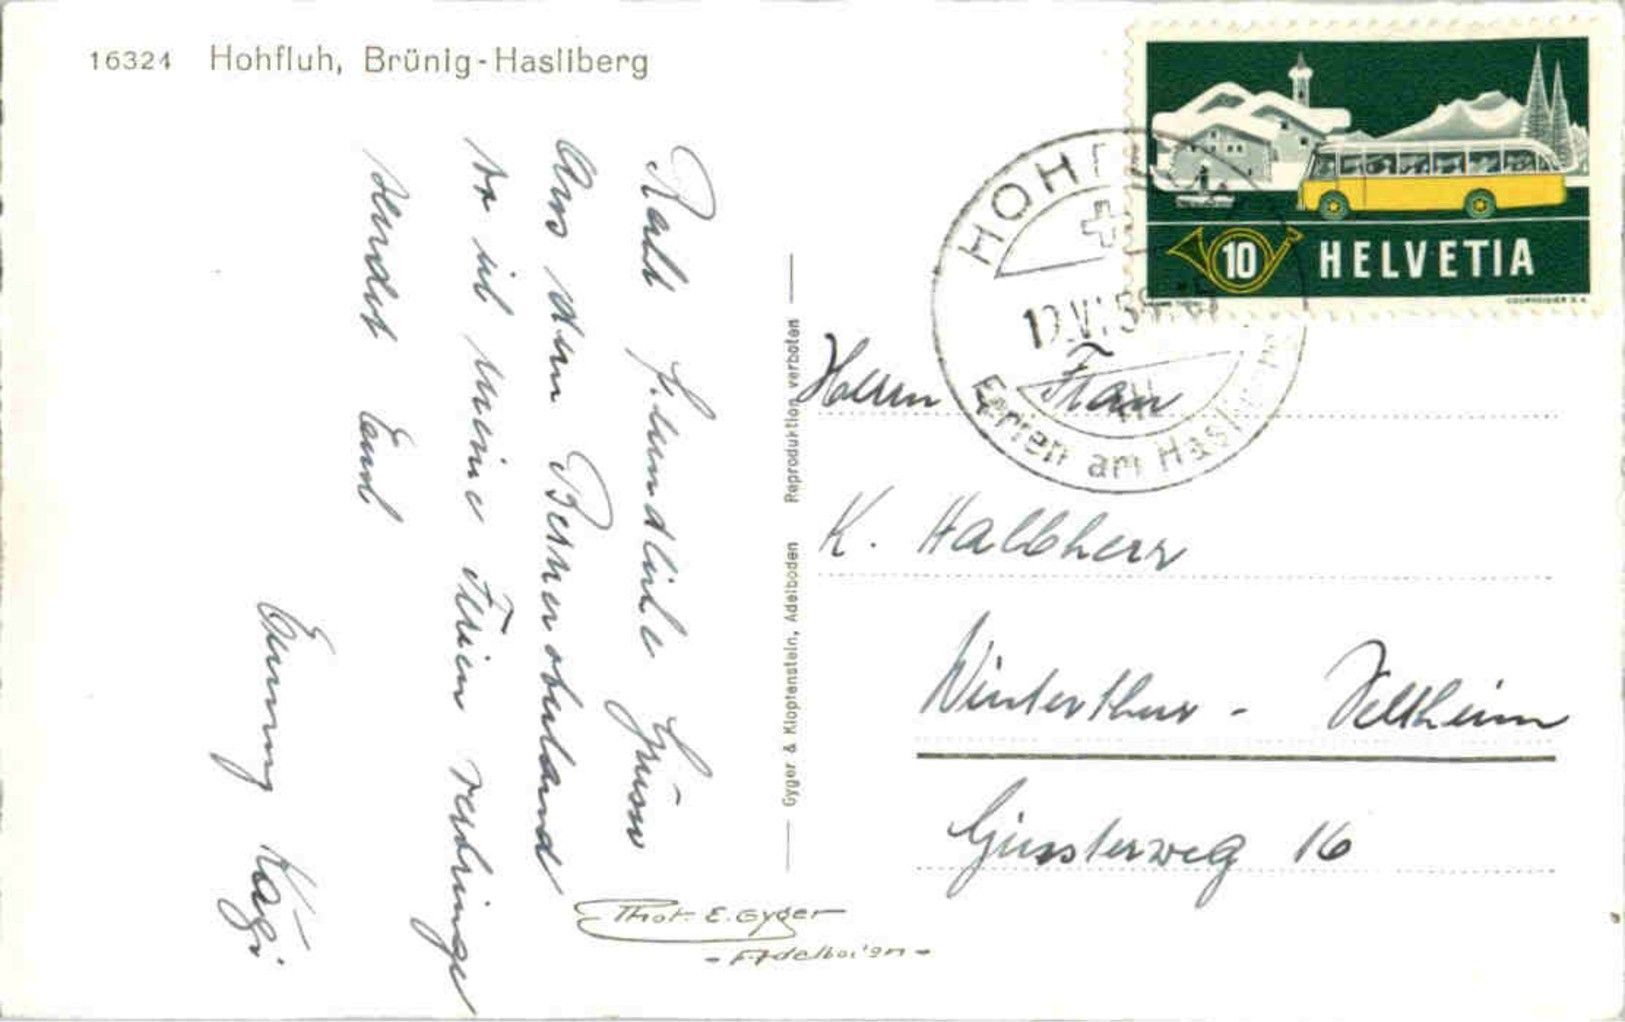 16324 Hohfluh, Brünig-Hasliberg
Recht freundliche Grüsse
Aus dem Berneroberland
wo ich meine Ferien verbringe
sendet Euch
Emmy Kägi
Gyger & Klopfenstein, Adelboden Reproduktion verboten
Phot. E. Gyger
- Adelboden -
10 HELVETIA
COURVOISIER S.A.
HOHFLUH
Ferien am Hasliberg
Herrn Frau
K. Halbherr
Winterthur - Veltheim
Güsterweg 16